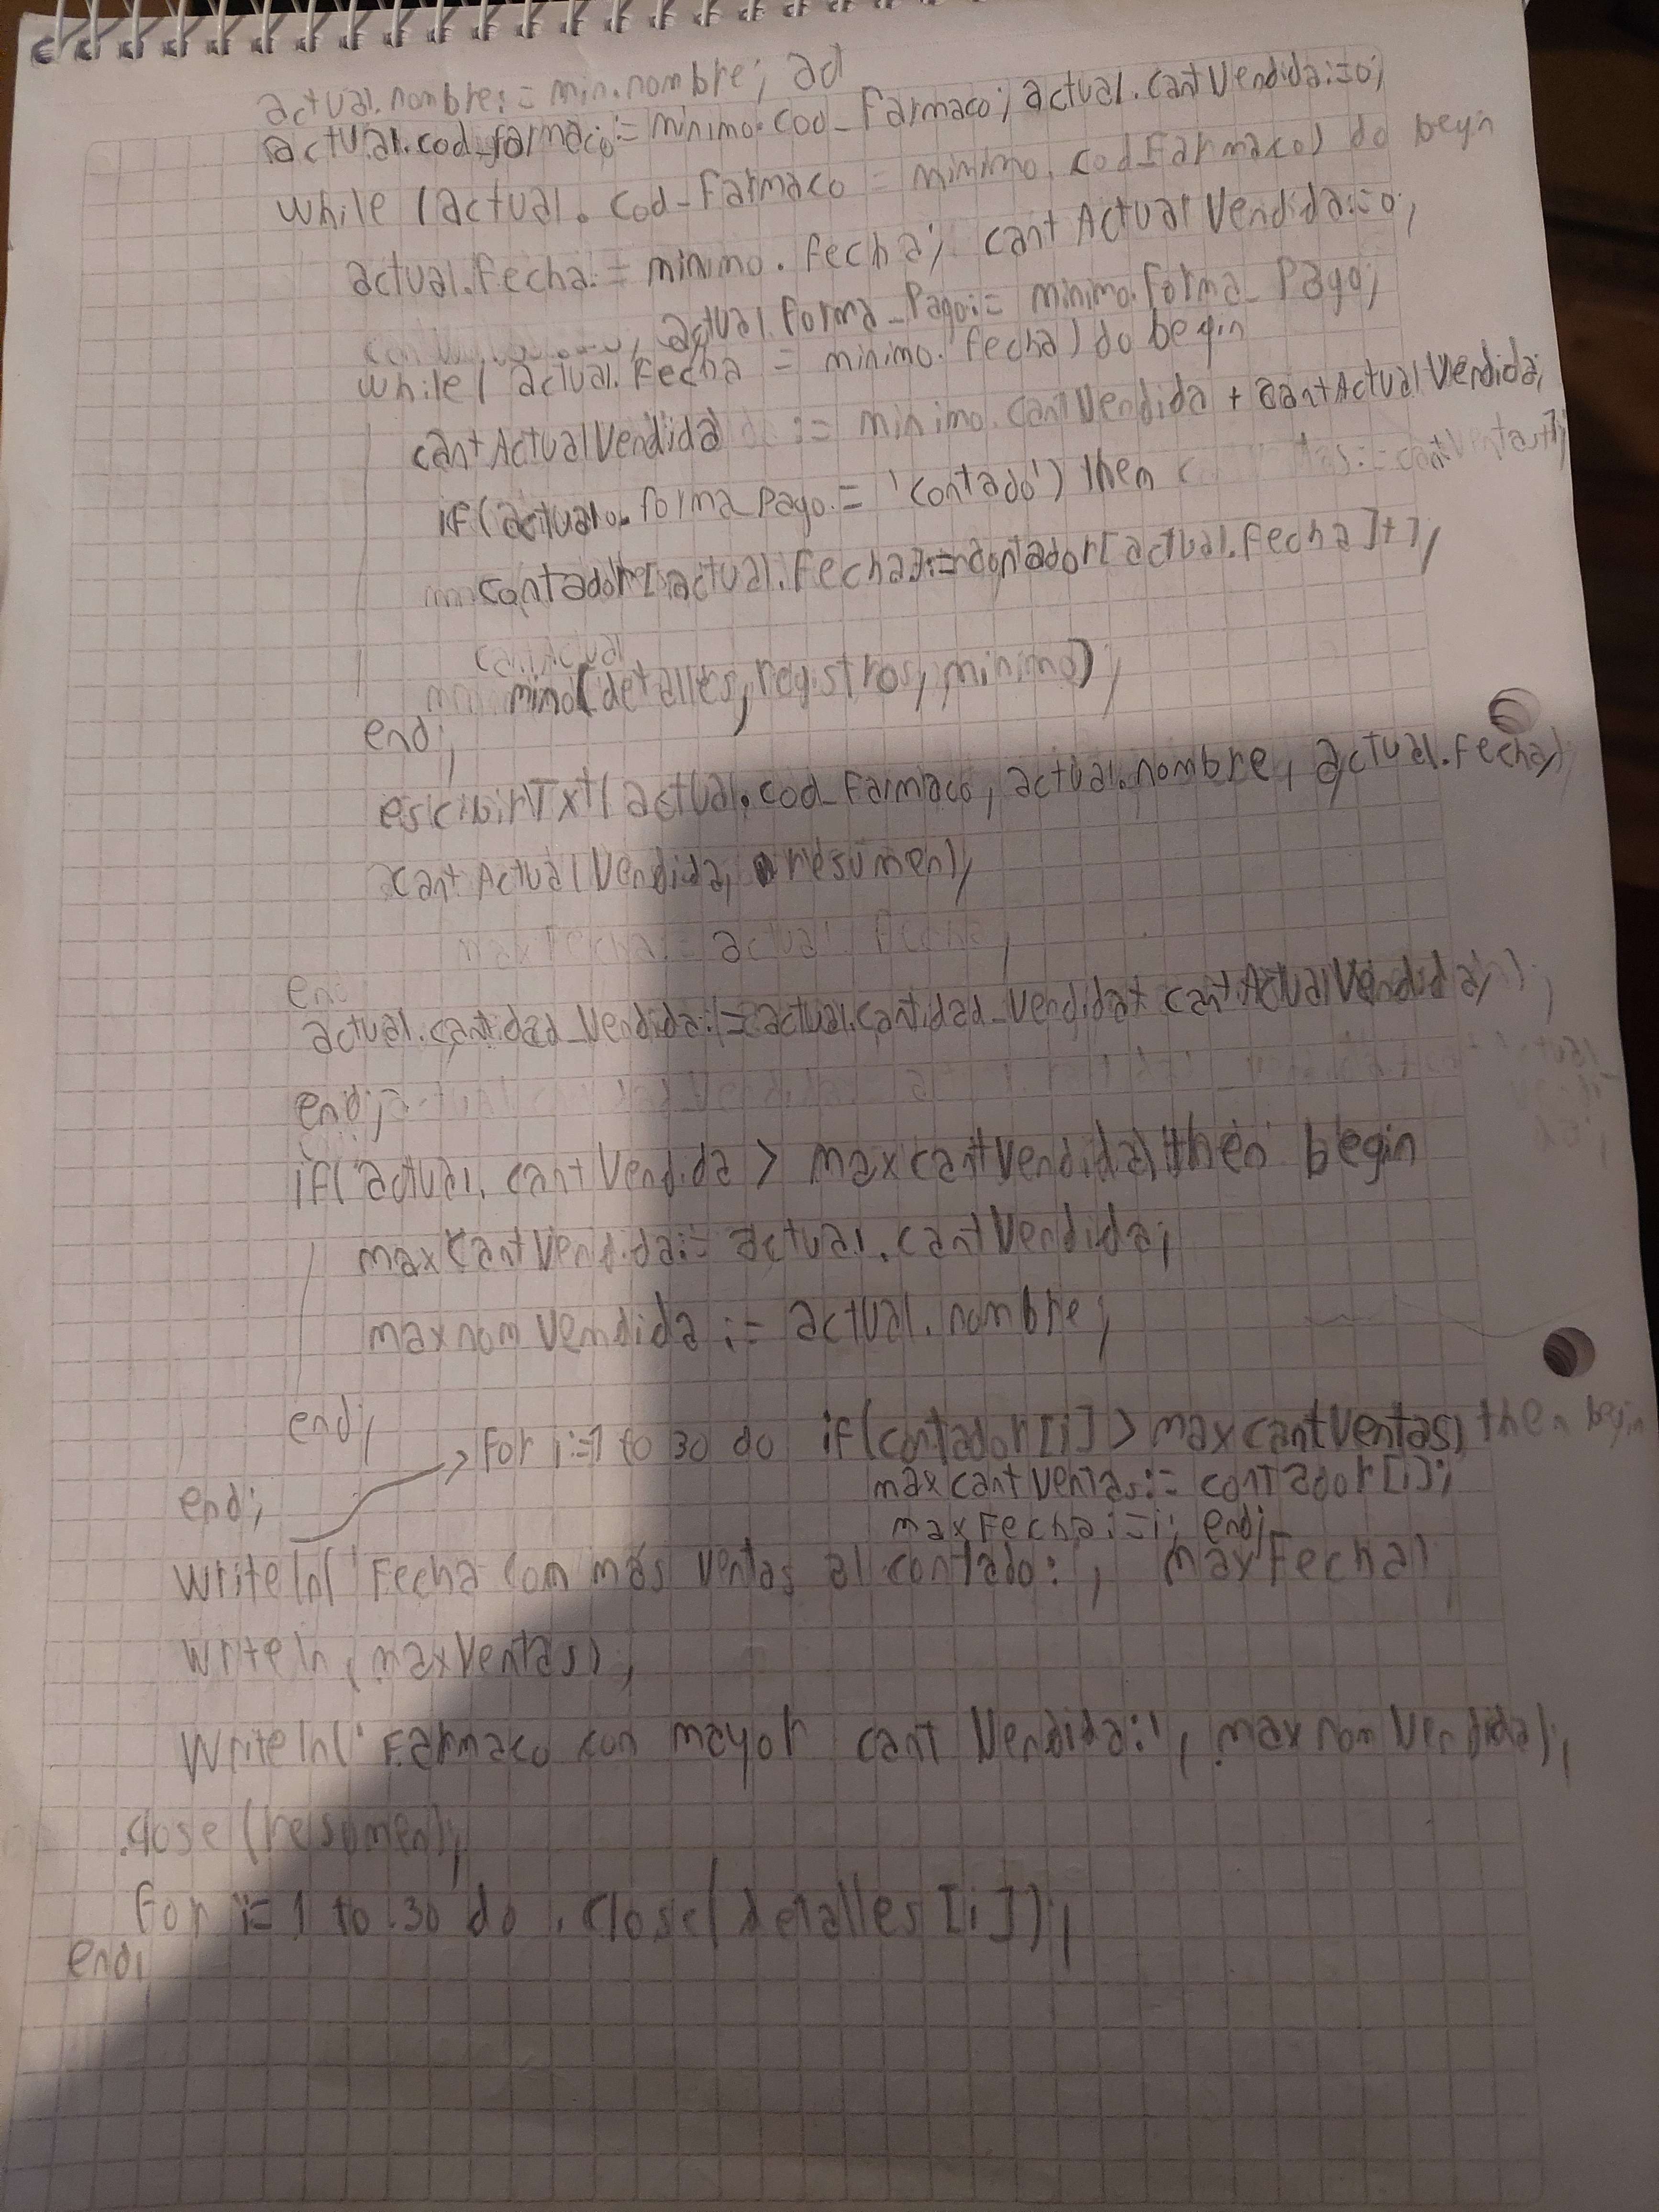 actual.nombre:= min.nombre; ad
actual.cod_farmaco:= minimo.cod_Farmaco; actual.cantVendida:=0;
while (actual.cod_Farmaco = minimo.cod_Farmaco) do begin
actual.Fecha:= minimo.fecha; cantActualVendida:=0;
actual.forma_Pago:= minimo.forma_Pago;
while( actual.Fecha = minimo.fecha) do begin
cantActualVendida := minimo.cantVendida + cantActualVendida;
if(actual.forma_pago = 'contado') then
contador[actual.Fecha]:=contador[actual.fecha]+1;
cantActual
mino(detalles,registros,minimo);
end;
escibirTxt(actual.cod_Farmaco, actual.nombre, actual.Fecha,
cantActualVendida, resumen);
maxFecha:= actual.fecha;
en
actual.cantidad_Vendida:=actual.cantidad_Vendida+cantActualVendida;
end;
if(actual.cantVendida > maxcantVendida)then begin
maxcantVendida:= actual.cantVendida;
maxnomVendida:= actual.nombre;
end;
for i:=1 to 30 do if(contador[i]>maxcantVentas) then begin
maxcantVentas:= contador[i];
end;
maxFecha:=i; end;
writeln('Fecha con más ventas al contado:', maxFecha)
writeln(maxVentas);
Writeln('Farmaco con mayor cant Vendida:', maxnomVendida);
close(resumen);
for i=1 to 30 do close(detalles[i]);
end;